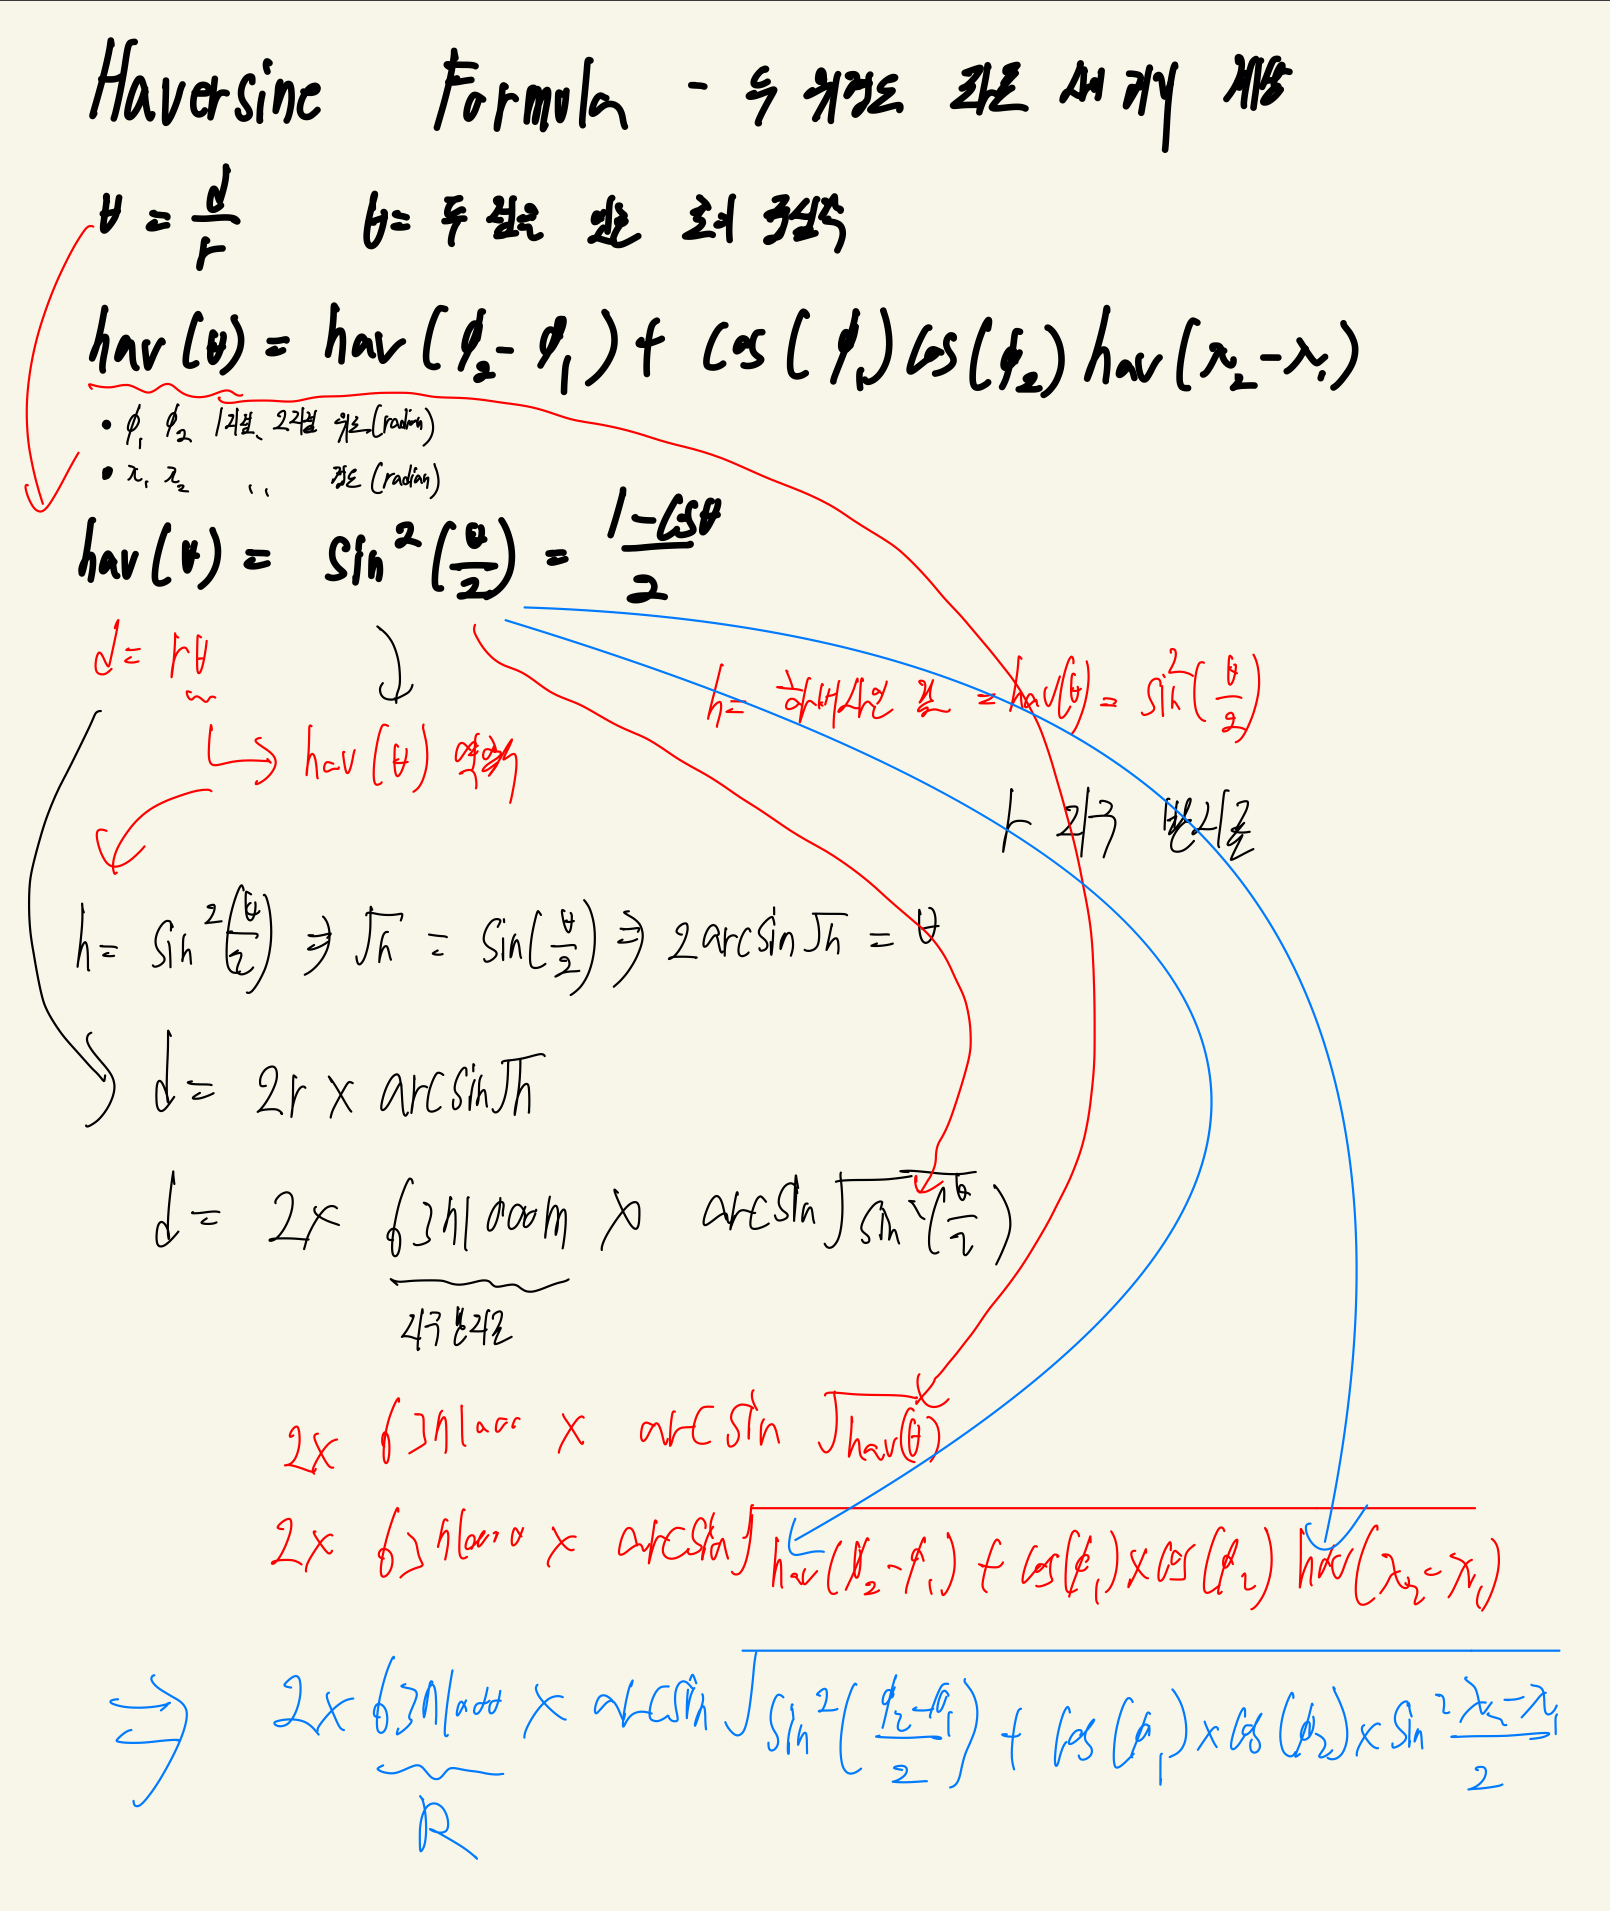 Haversine Formula - 두 위경도 좌표 사이 거리 계산
θ = d/r θ= 두 점을 잇는 호의 중심각
hav(θ) = hav(ϕ₂-ϕ₁) + cos(ϕ₁)cos(ϕ₂)hav(λ₂-λ₁)
• ϕ₁ ϕ₂ 1지점, 2지점 위도(radian)
• λ₁ λ₂ ,, 경도(radian)
hav(θ) = sin²(θ/2) = (1-cosθ)/2
d = rθ
h = 하버사인 값 = hav(θ) = sin²(θ/2)
↳ hav(θ)
r 지구 반지름
h = sin²(θ/2) ⇒ √h = sin(θ/2) ⇒ 2arcsin√h = θ
d = 2r × arcsin√h
d = 2× 6371000m × arcsin√sin²(θ/2)
지구반지름
2× 6371000 × arcsin √hav(θ)
2× 6371000 × arcsin√hav(ϕ₂-ϕ₁) + cos(ϕ₁)×cos(ϕ₂) hav(λ₂-λ₁)
⇒ 2× 6371000 × arcsin √sin²((ϕ₂-ϕ₁)/2) + cos(ϕ₁)×cos(ϕ₂)×sin² (λ₂-λ₁)/2
R